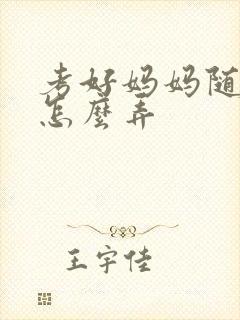 考好妈妈随
怎麼弄
王宇佳